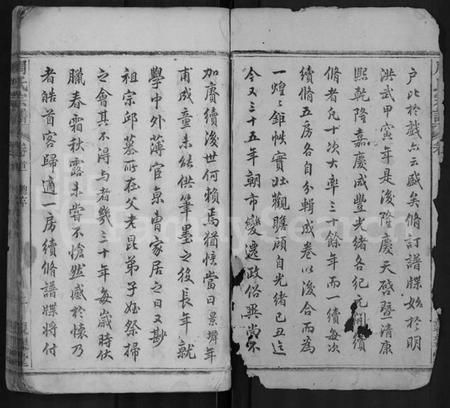 戶此於戲亦云盛矣脩訂譜牒始於明
洪武甲寅年是後隆慶天啟暨清康
熙乾隆嘉慶咸豐光緒各紀元續
脩者凡十次大率三十餘年而一續每次
續脩五房各自分輯成卷以後合而為
一煌鉅帙實壯觀瞻顧自光緒己丑迄
今又三十五年朝市變遷政俗異尚不
加賡續後世何賴焉猶憶當日景墀年
甫成童未結供筆墨之役長年就
學中外薄官京曹家居之日又尠
祖宗邱墓所在父老昆弟子姪祭掃
之會其不得與者幾三十年每歲時伏
臘春霜秋露未嘗不愴然感於懷乃
者皓首客歸適一房續脩譜牒將付